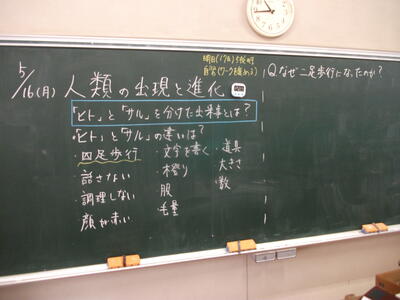 5/16(月) 人類の出現と進化
明日(17火)
自習(ワークを進める)
「ヒト」と「サル」を分けた出来事とは?
「ヒト」と「サル」の違いは?
・四足歩行 ・文字を書く ・道具
話さない ・木登り ・大きさ
調理しない 服 ・数
顔が赤い ・毛量
Q.なぜ二足歩行になったのか?